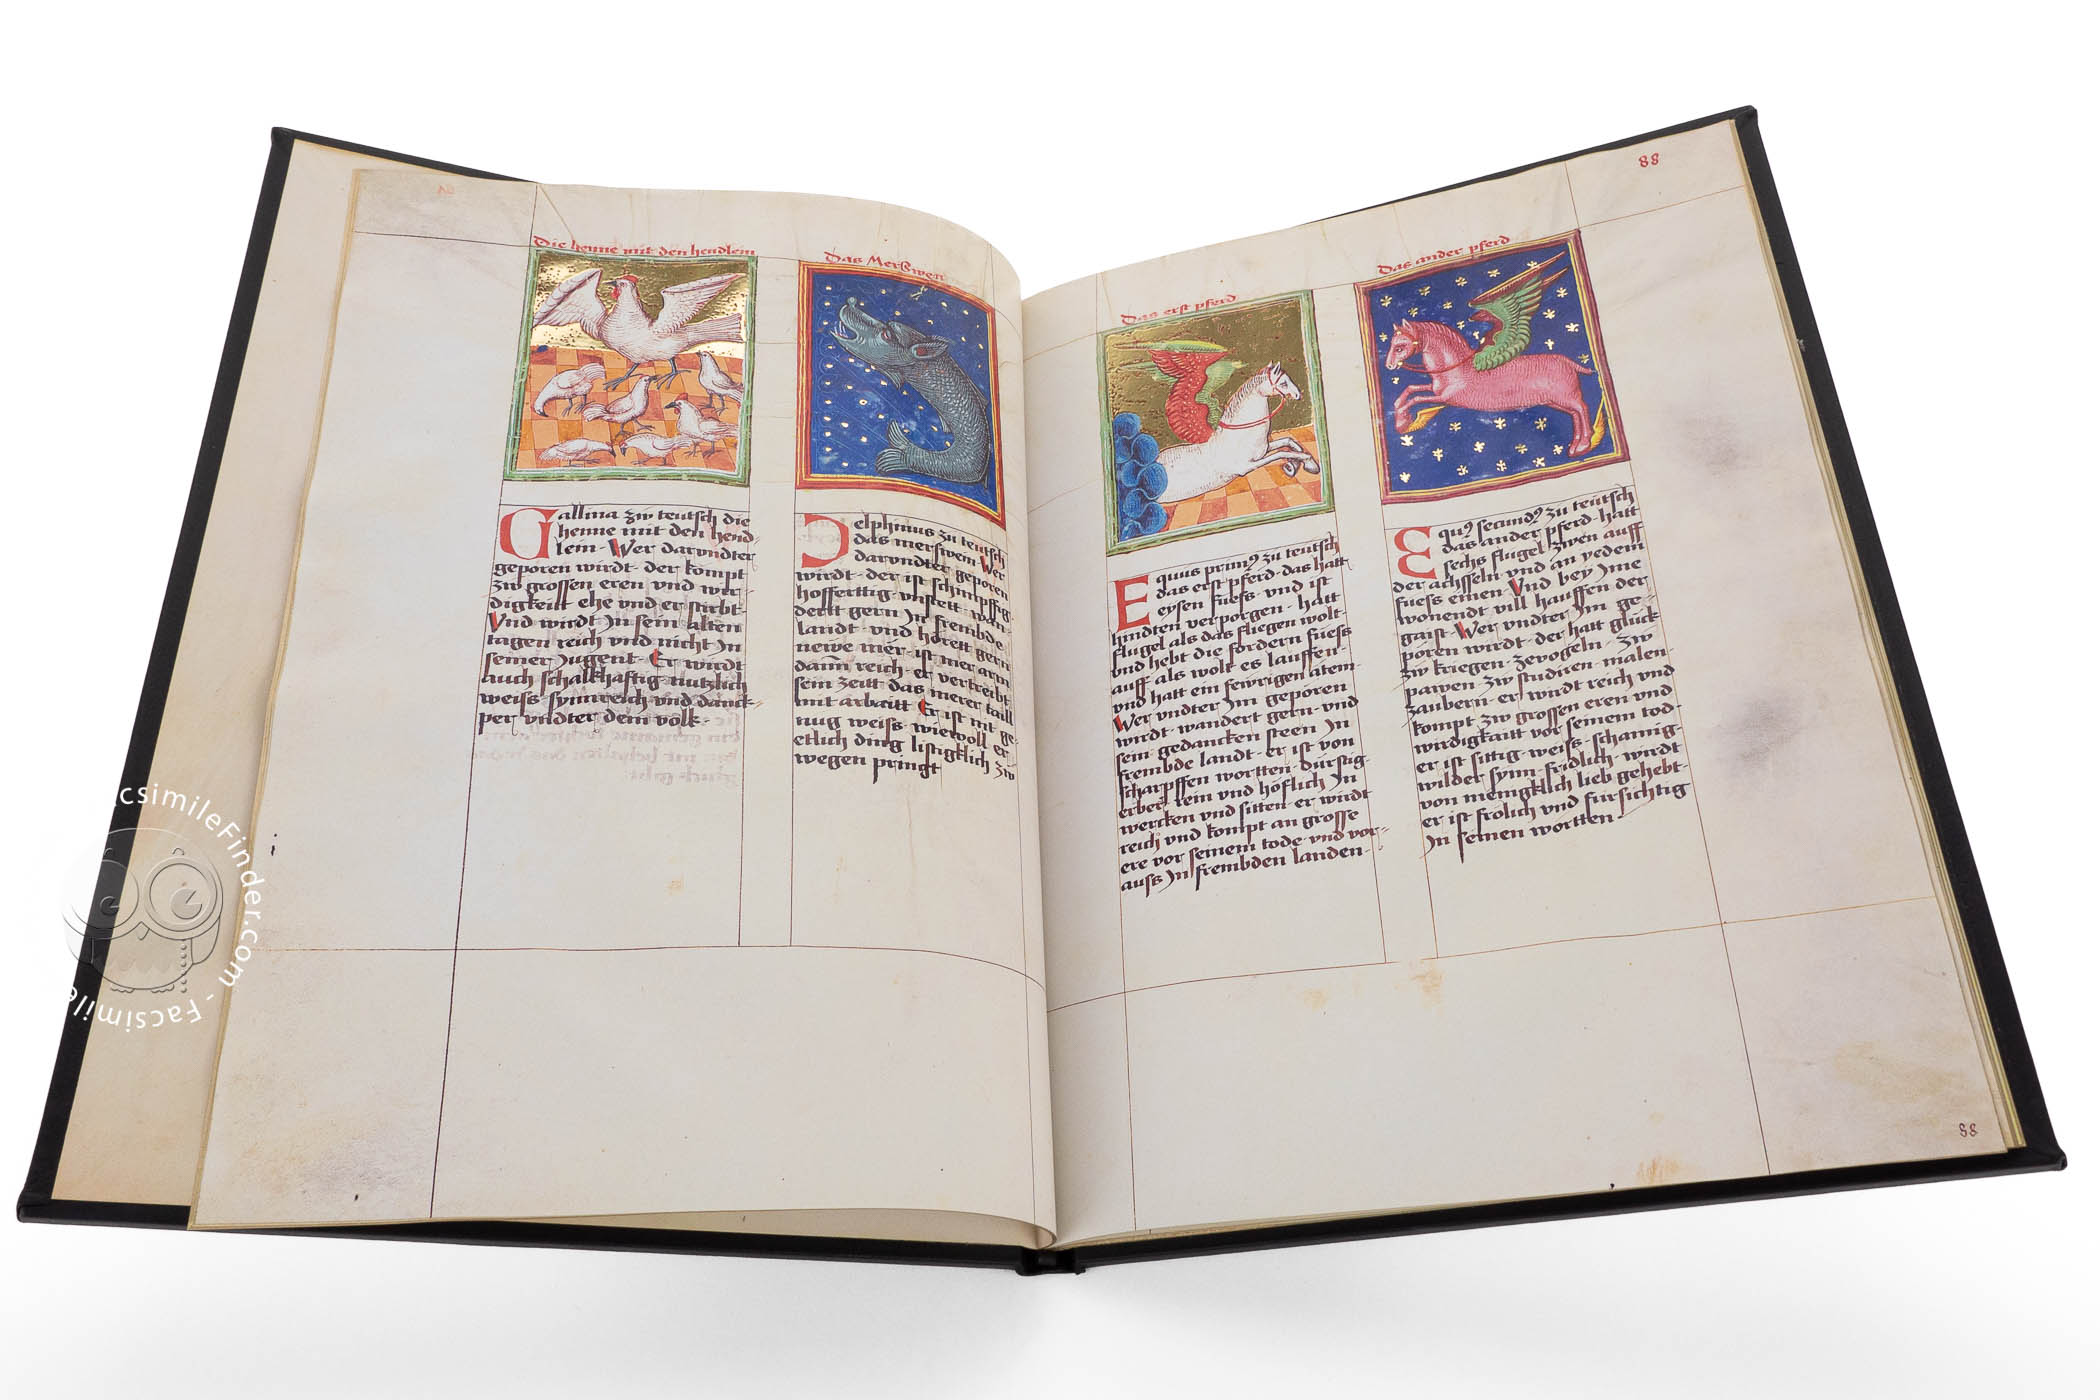 Die henne mit den hendlein
Gallina zw teutsch die
henne mit den hend-
lein · Wer darvndter
geporen wirdt · der kompt
zw grossen eren vnd wir-
digkeit ehe vnd er stirbt ·
Vnd wirdt In sein alten
tagen reich vnd nicht In
seiner Jugent · Er wirdt
auch schalkhafftig nutzlich
weiss synnreich vnd danck-
per vndter dem volk ·
Das Merßwein
Delphinus zu teutsch
das merswein Wer
darvndter geporen
wirdt · der ist schimpffig
hoffertig · vnstett · wan-
dertt gern In frembde
landt · vnd hörett gern
newe mer · ist mer arm
dann reich · er vertreibt
sein zeitt das merer taill
mit arbaitt Er ist nit ge-
nug weiss · wiewoll er
etlich ding listigklich zw
wegen pringt
88
Das erst pferd
Equus primꝯ zu teutsch
das erst pferd · das hatt
eysen fuess · vnd ist
hindten verporgen · hatt
flugel als das fliegen wolt ·
vnd hebt die fordern fuess
auff als wolt es lauffen ·
vnd hatt ein fewrigen atem ·
Wer vndter Im geporen
wirdt · wandert gern vnd
sein gedancken steen In
frembde landt · er ist von
scharpffen wortten dürstig ·
erber rein vnd höflich In
wercken vnd sitten · er wirdt
reich vnd kompt an grosse
ere vor seinem tode · vnd vor-
auss In frembden landen ·
Das ander pferd
Equꝯ secundꝯ zu teutsch
das ander pferd · hatt
sechs flugel zwen auff
der achsseln vnd an yedem
fuess einen Vnd bey Ime
wonendt vill hauffen der
gaist · Wer vndter Im ge-
poren wirdt · der hatt glück
zw kriegen · zevogeln · zw
pawen · zw studiren · malen ·
zaubern · er wirdt reich vnd
kompt zw grossen eren vnd
wirdigkaitt vor seinem tod ·
er ist sittig · weiss · schamig ·
wilder synn · fridlich · wirdt
von menigklich lieb gehebt ·
er ist frölich vnd fürsichtig
In seinen wortten ·
88
FacsimileFinder.com - Facsimile